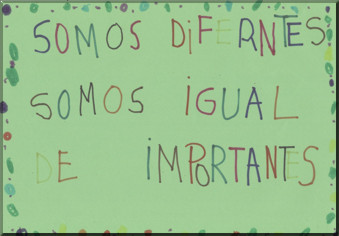 SOMOS DiFERNTES
SOMOS iGUAL
DE iMPORTANTES